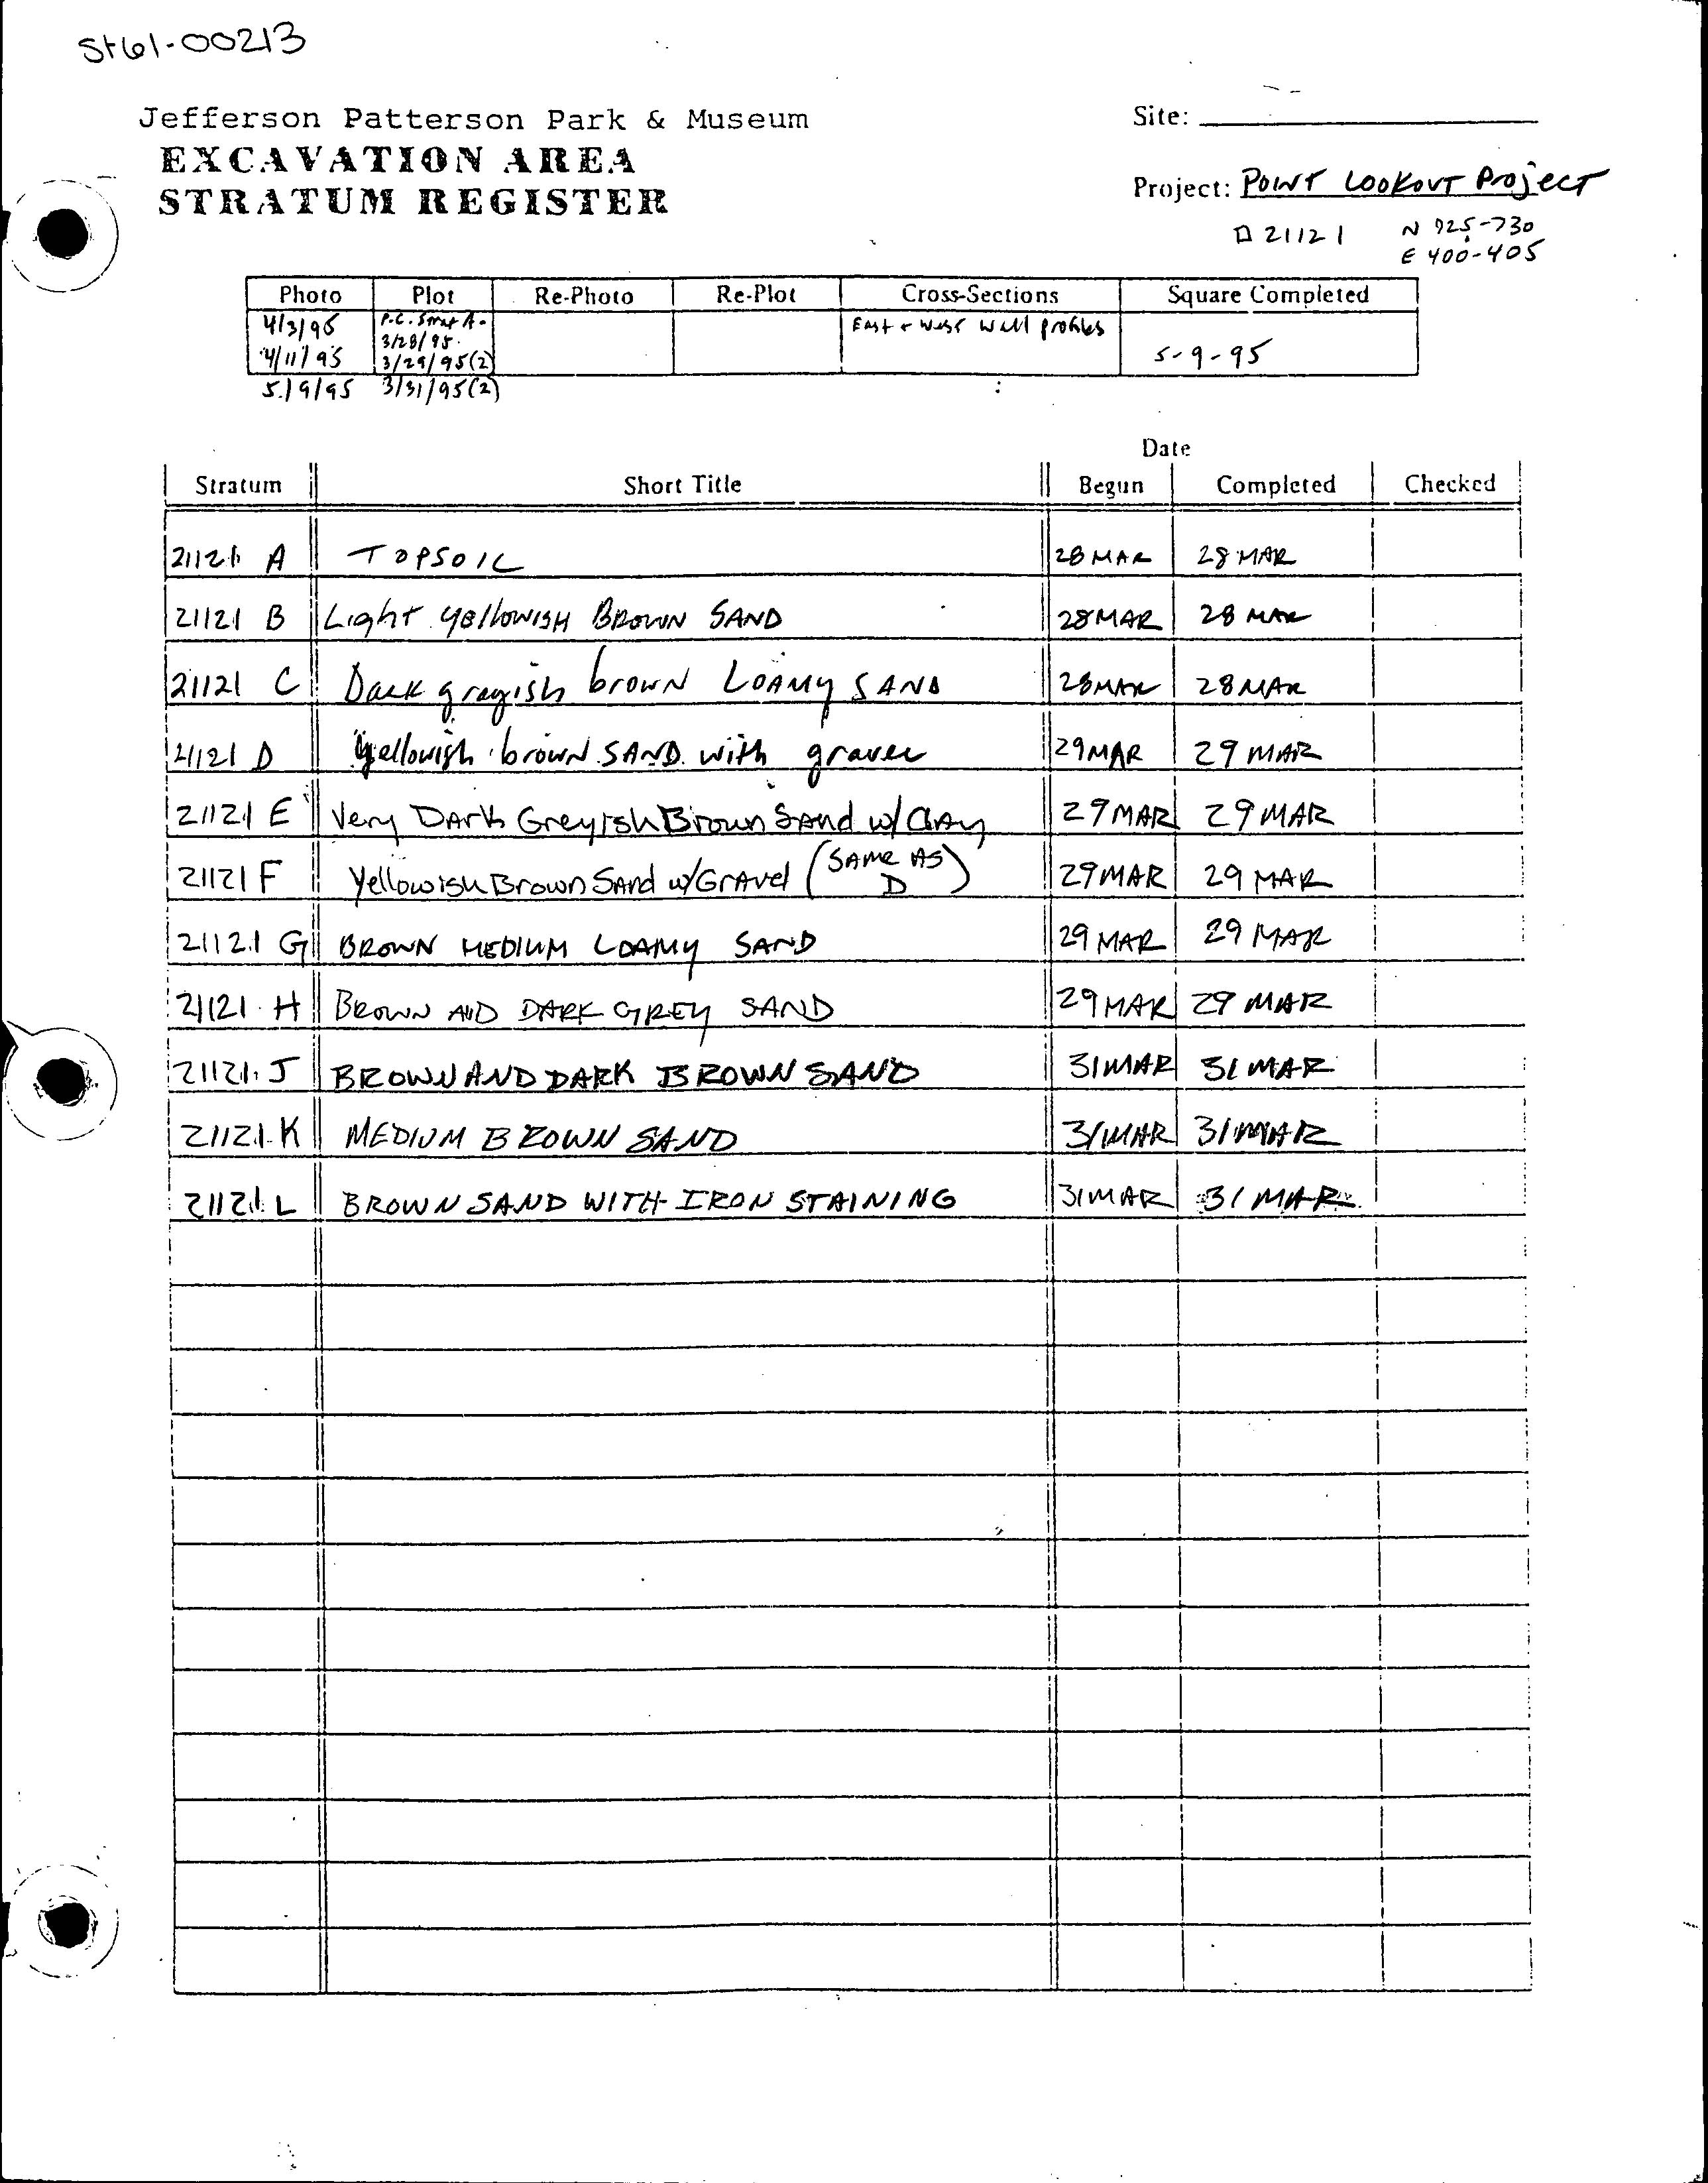 St61-00213
Jefferson Patterson Park & Museum
EXCAVATION AREA
STRATUM REGISTER
Site:
Project: POINT LOOKOUT Project
21121 N 725-730
E 400-405
Photo Plot Re-Photo Re-Plot Cross-Sections Square Completed
4/3/95 P.C. Strat A - East + West Wall profiles
3/28/95
4/11/95 3/29/95(2) 5-9-95
5/9/95 3/31/95(2)
Date
Stratum Short Title Begun Completed Checked
21121 A TOPSOIL 28 MAR 28 MAR
21121 B Light yellowish BROWN SAND 28 MAR 28 MAR
21121 C Dark grayish brown LOAMY SAND 28 MAR 28 MAR
21121 D yellowish brown SAND with gravel 29 MAR 29 MAR
21121 E Very Dark Greyish Brown Sand w/ Clay 29 MAR 29 MAR
21121 F Yellowish Brown Sand w/ Gravel (SAME AS D) 29 MAR 29 MAR
21121 G BROWN MEDIUM LOAMY SAND 29 MAR 29 MAR
21121 H BROWN AND DARK GREY SAND 29 MAR 29 MAR
21121 J BROWN AND DARK BROWN SAND 31 MAR 31 MAR
21121 K MEDIUM BROWN SAND 31 MAR 31 MAR
21121 L BROWN SAND WITH IRON STAINING 31 MAR 31 MAR